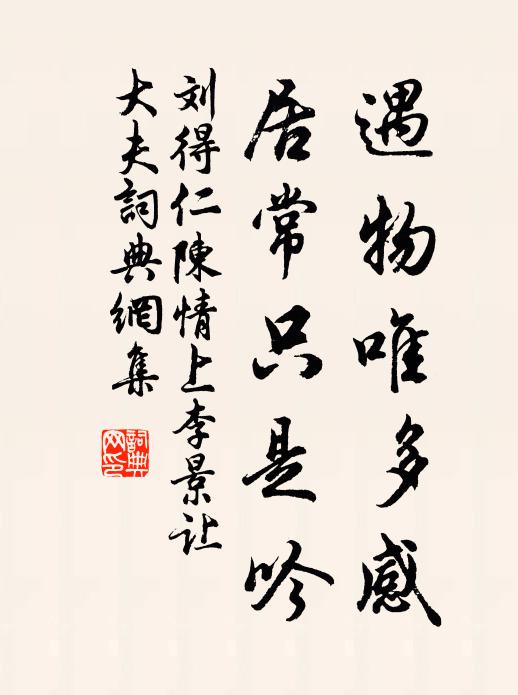 遇物唯多感
居常只是吟
刘得仁陳情上李景让
大夫詞典網集
詞典网印